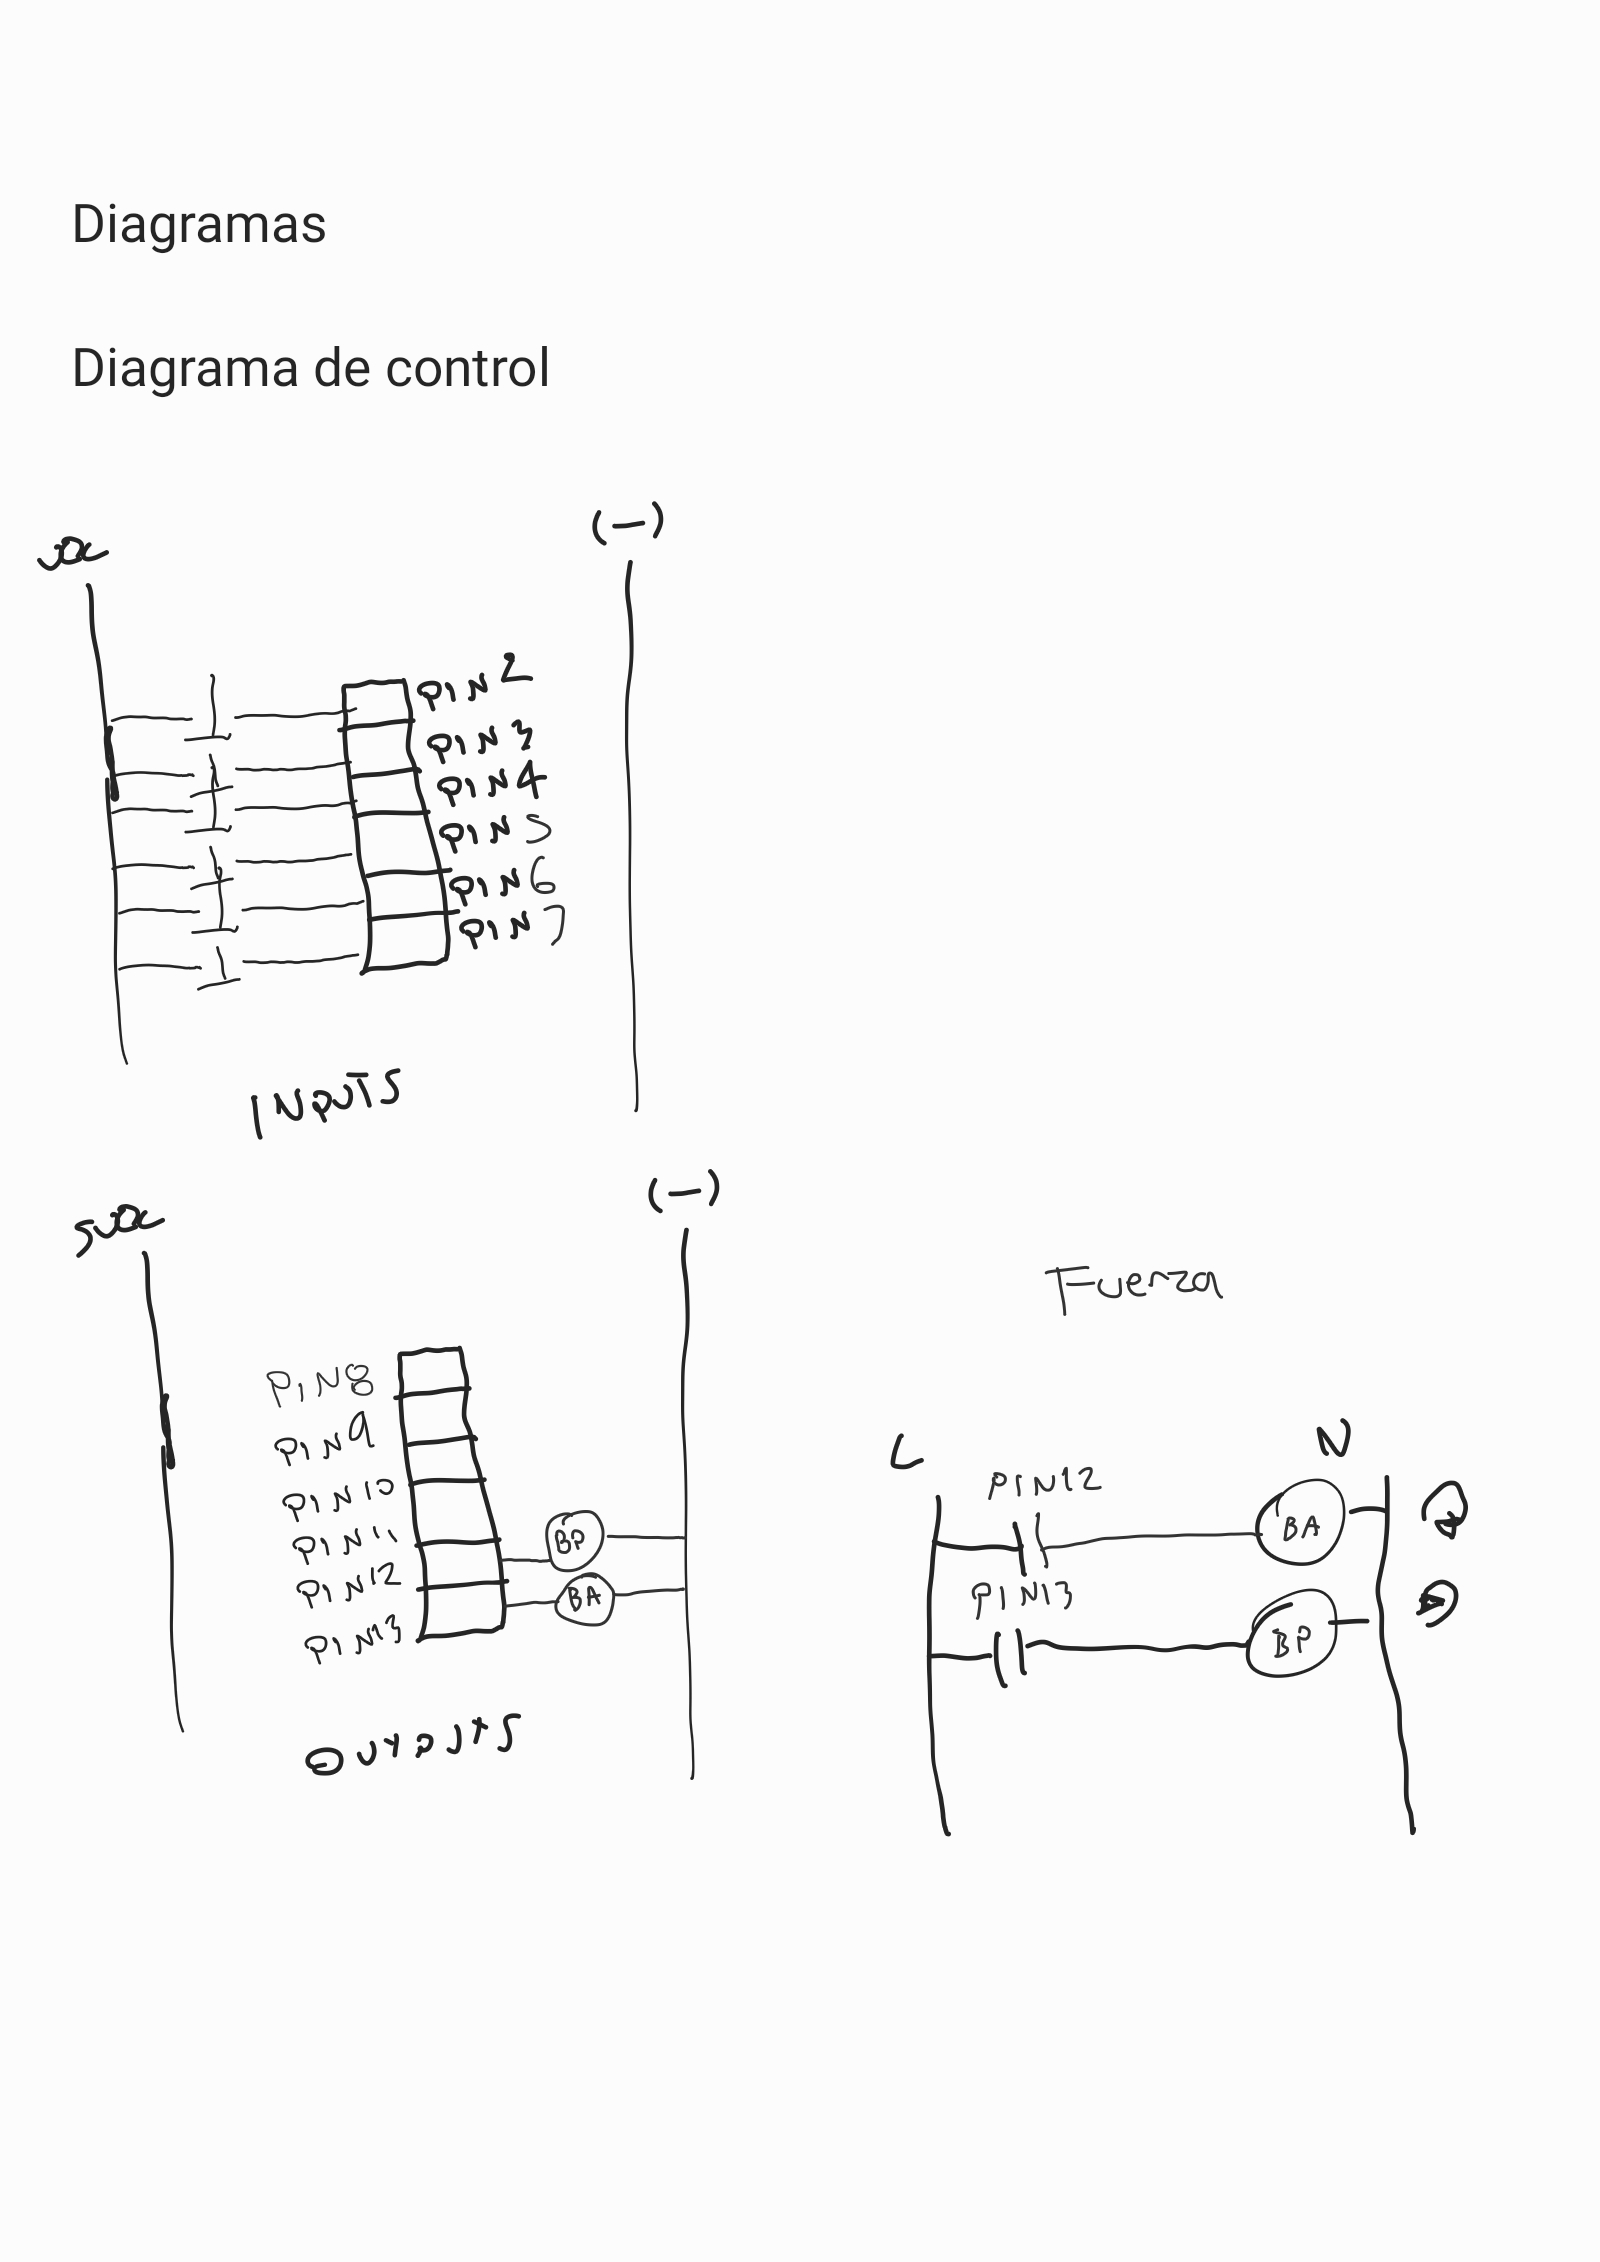 Diagramas
Diagrama de control
VDC
(-)
PIN 2
PIN 3
PIN 4
PIN 5
PIN 6
PIN 7
INPUTS
5VDC
(-)
PIN 8
PIN 9
PIN 10
PIN 11
PIN 12
PIN 13
BP
BA
OUTPUTS
Fuerza
L
N
PIN12
BA
PIN13
BP